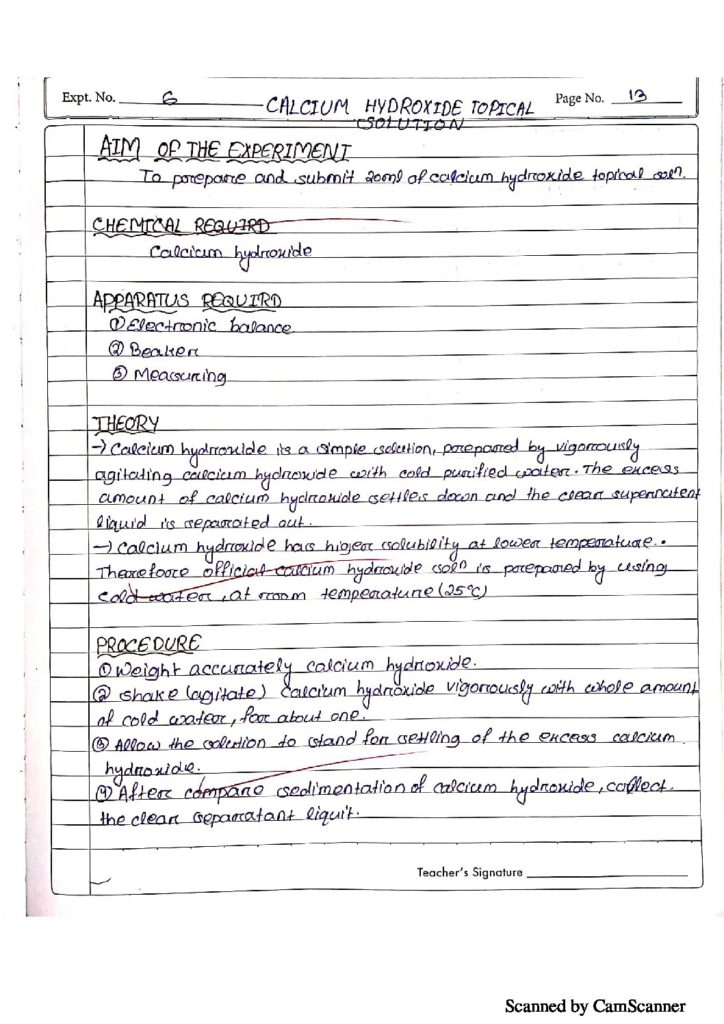 Expt. No. 6
CALCIUM HYDROXIDE TOPICAL
Page No. 13
SOLUTION
AIM OF THE EXPERIMENT
To porepare and submit 20ml of calcium hydroxide topical soln.
CHEMICAL REQUIRD
Calcium hydroxide
APPARATUS REQUIRD
① Electronic balance
② Beaker
③ Measuring
THEORY
→ Calcium hydroxide is a simple solution, porepared by vigorously
agitating calcium hydroxide with cold purified water. The excess
amount of calcium hydroxide settles down and the clear supernatent
liquid is separated out.
→ Calcium hydroxide has higer solubility at lower temperature.
Therefoore official calcium hydroxide soln is porepared by using
cold water, at room temperature (25°C)
PROCEDURE
① Weight accurately calcium hydroxide.
② Shake (agitate) calcium hydroxide vigorously with whole amount
of cold water, for about one.
③ Allow the solution to stand for settling of the excess calcium
hydroxide.
④ After compare sedimentation of calcium hydroxide, collect.
the clear separatant liquit.
Teacher's Signature
Scanned by CamScanner